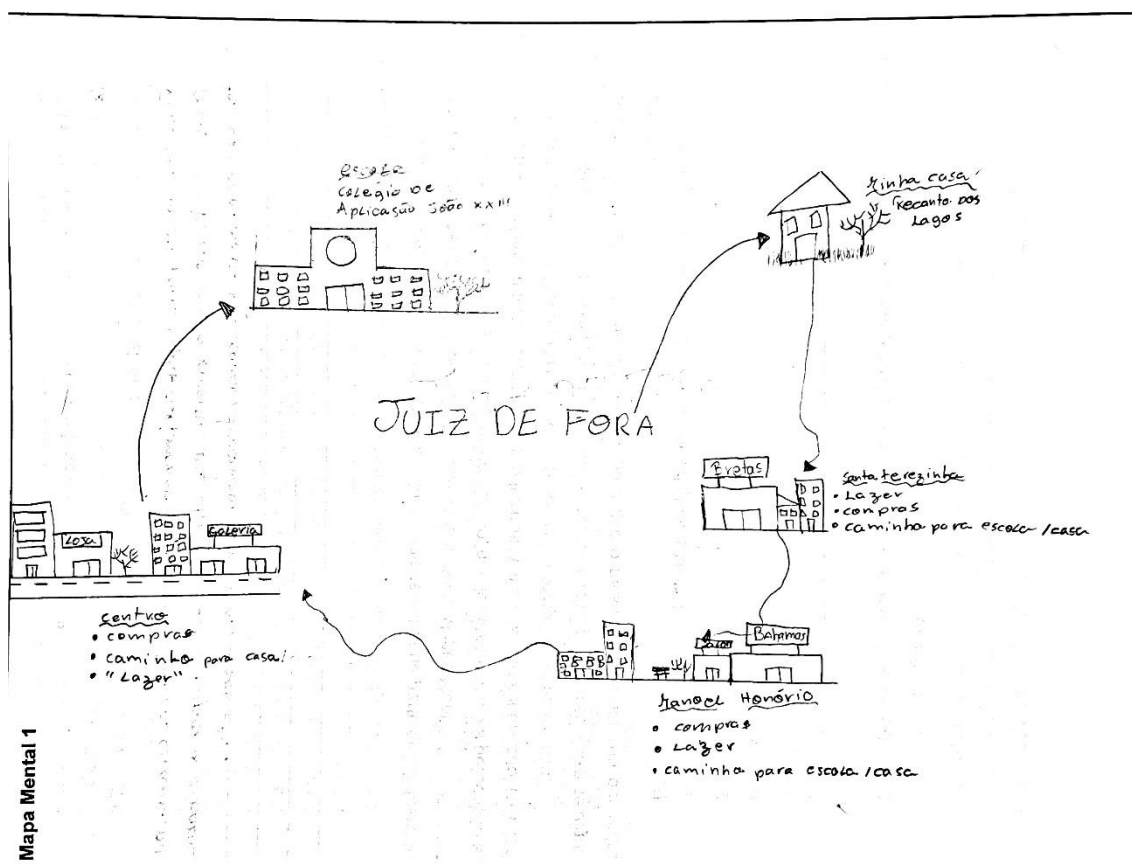 escola
colégio de
Aplicação João XXIII
Minha casa
Recanto dos
Lagos
JUIZ DE FORA
Bretas
Santa terezinha
• Lazer
• compras
• caminho para escola /casa
Loja
Galeria
centro
• compras
• caminho para casa/
• "Lazer"
Bahamas
Manoel Honório
• compras
• Lazer
• caminho para escola /casa
Mapa Mental 1